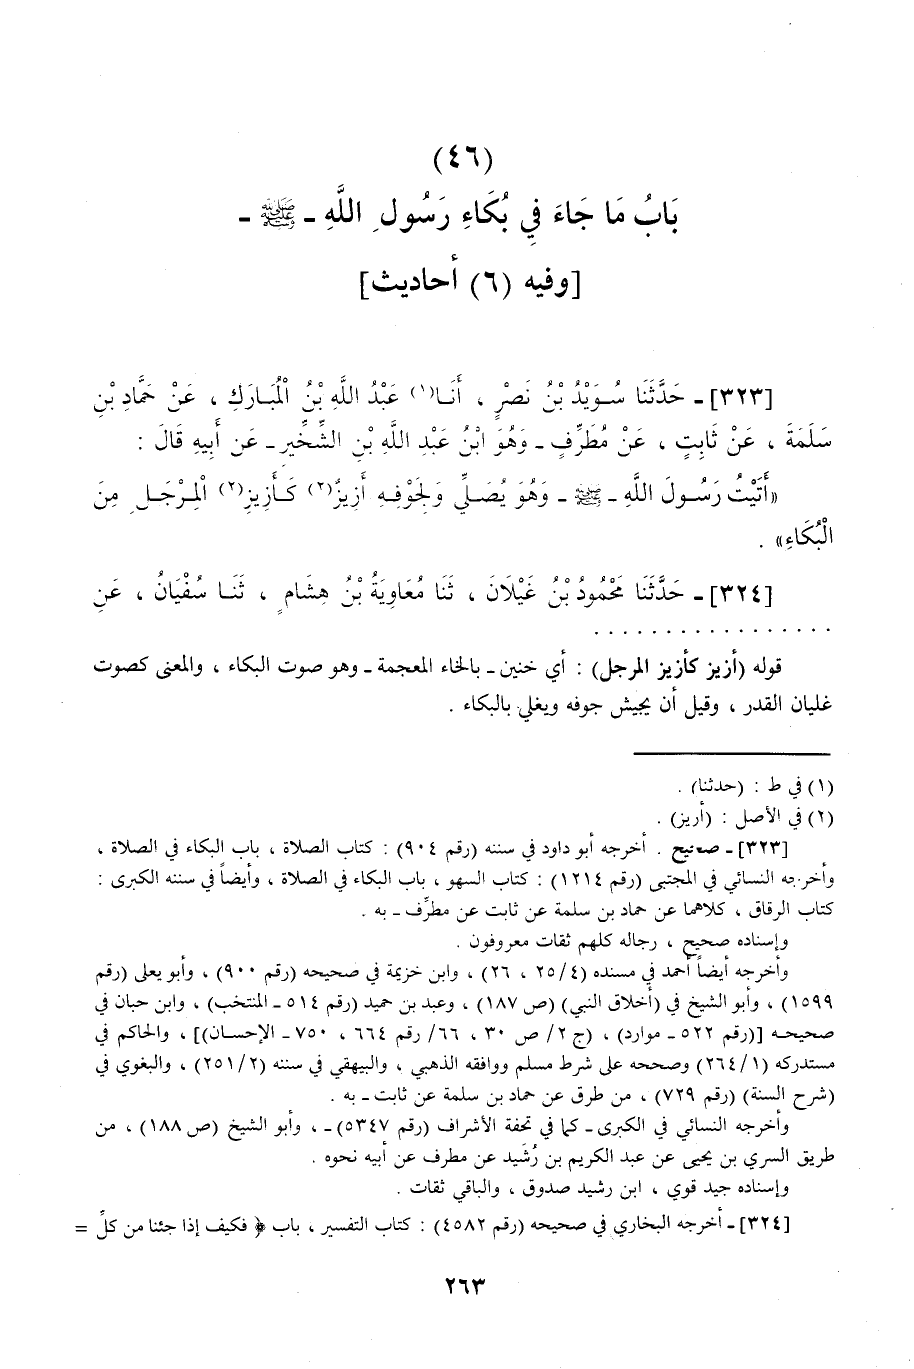 (٤٦)
بَابُ مَا جَاءَ فِي بُكَاءِ رَسُولِ اللَّهِ ـ ﷺ ـ
[وفيه (٦) أحاديث]
[٣٢٣]ـ حَدَّثَنَا سُوَيْدُ بْنُ نَصْرٍ ، أَنَا(١) عَبْدُ اللَّهِ بْنُ الْمُبَارَكِ ، عَنْ حَمَّادِ بْنِ
سَلَمَةَ ، عَنْ ثَابِتٍ ، عَنْ مُطَرِّفٍ ـ وَهُوَ ابْنُ عَبْدِ اللَّهِ بْنِ الشِّخِّيرِ ـ عَن أَبِيهِ قَالَ :
«أَتَيْتُ رَسُولَ اللَّهِ ـ ﷺ ـ وَهُوَ يُصَلِّي وَلِجَوْفِهِ أَزِيزٌ(٢) كَأَزِيزِ(٢) الْمِرْجَلِ مِنَ
الْبُكَاءِ» .
[٣٢٤]ـ حَدَّثَنَا مَحْمُودُ بْنُ غَيْلَانَ ، ثَنَا مُعَاوِيَةُ بْنُ هِشَامٍ ، ثَنَا سُفْيَانُ ، عَنِ
. . . . . . . . . . . . . . . . .
قوله (أزيز كأزيز المرجل) : أي خنين ـ بالخاء المعجمة ـ وهو صوت البكاء ، والمعنى كصوت
غليان القدر ، وقيل أن يجيش جوفه ويغلي بالبكاء .
(١) في ط : (حدثنا) .
(٢) في الأصل : (أريز) .
[٣٢٣]ـ صحيح . أخرجه أبو داود في سننه (رقم ٩٠٤) : كتاب الصلاة ، باب البكاء في الصلاة ،
وأخرجه النسائي في المجتبى (رقم ١٢١٤) : كتاب السهو ، باب البكاء في الصلاة ، وأيضاً في سننه الكبرى :
كتاب الرقاق ، كلاهما عن حماد بن سلمة عن ثابت عن مطرِّف ـ به .
وإسناده صحيح ، رجاله كلهم ثقات معروفون .
وأخرجه أيضاً أحمد في مسنده (٢٥/٤ ، ٢٦) ، وابن خزيمة في صحيحه (رقم ٩٠٠) ، وأبو يعلى (رقم
١٥٩٩) ، وأبو الشيخ في (أخلاق النبي) (ص ١٨٧) ، وعبد بن حميد (رقم ٥١٤ ـ المنتخب) ، وابن حبان في
صحيحه [(رقم ٥٢٢ ـ موارد) ، (ج ٢/ ص ٣٠ ، ٦٦/ رقم ٦٦٤ ، ٧٥٠ ـ الإحسان)] ، والحاكم في
مستدركه (٢٦٤/١) وصححه على شرط مسلم ووافقه الذهبي ، والبيهقي في سننه (٢٥١/٢) ، والبغوي في
(شرح السنة) (رقم ٧٢٩) ، من طرق عن حماد بن سلمة عن ثابت ـ به .
وأخرجه النسائي في الكبرى ـ كما في تحفة الأشراف (رقم ٥٣٤٧) ـ ، وأبو الشيخ (ص ١٨٨) ، من
طريق السري بن يحيى عن عبد الكريم بن رُشَيد عن مطرف عن أبيه نحوه .
وإسناده جيد قوي ، ابن رشيد صدوق ، والباقي ثقات .
[٣٢٤]ـ أخرجه البخاري في صحيحه (رقم ٤٥٨٢) : كتاب التفسير ، باب ﴿ فكيف إذا جئنا من كلِّ =
٢٦٣